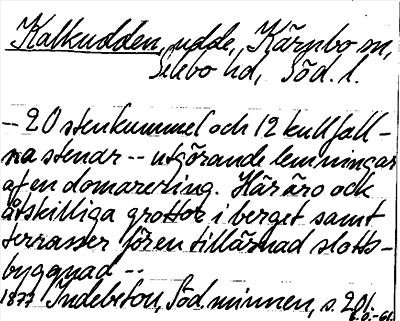 Kalkudden, udde, Kärnbo sn,
Selebo hd, Söd. l.
- 20 stenkummel och 12 kullfall-
na stenar -- utgörande lemningar
af en domarering. Här äro ock
åtskilliga grottor i berget samt
terrasser för en tillärnad slotts-
byggnad --
1877 Indebetou, Söd. minnen, s. 201.